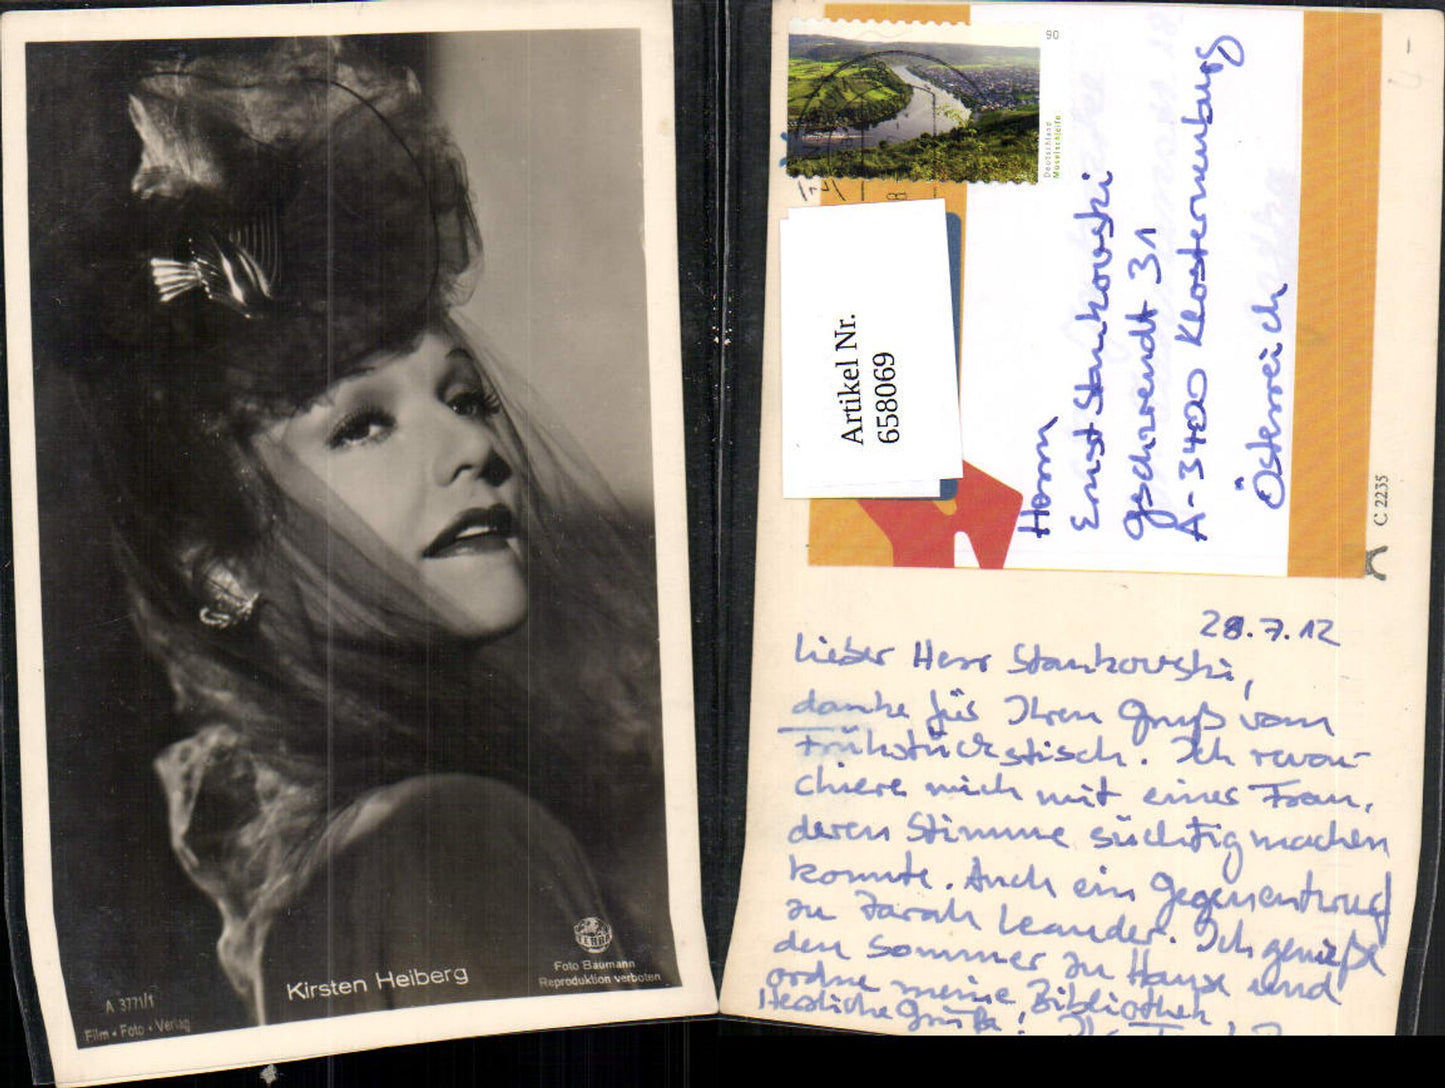 Kirsten Heiberg
A 3771/1
Film • Foto • Verlag
TERRA
Foto Baumann
Reproduktion verboten
90
Deutschland
Moselschleife
Artikel Nr.
658069
Herrn
Ernst Stankovski
Gschwendt 31
A-3400 Klosterneuburg
Österreich
C 2235
28.7.12
Lieber Herr Stankovski,
danke für Ihren Gruß vom
Frühstückstisch. Ich revan-
chiere mich mit einer Frau,
deren Stimme süchtig machen
konnte. Auch ein Gegenentwurf
zu Zarah Leander. Ich genieße
den Sommer zu Hause und
ordne meine Bibliothek
Herzliche Grüße,